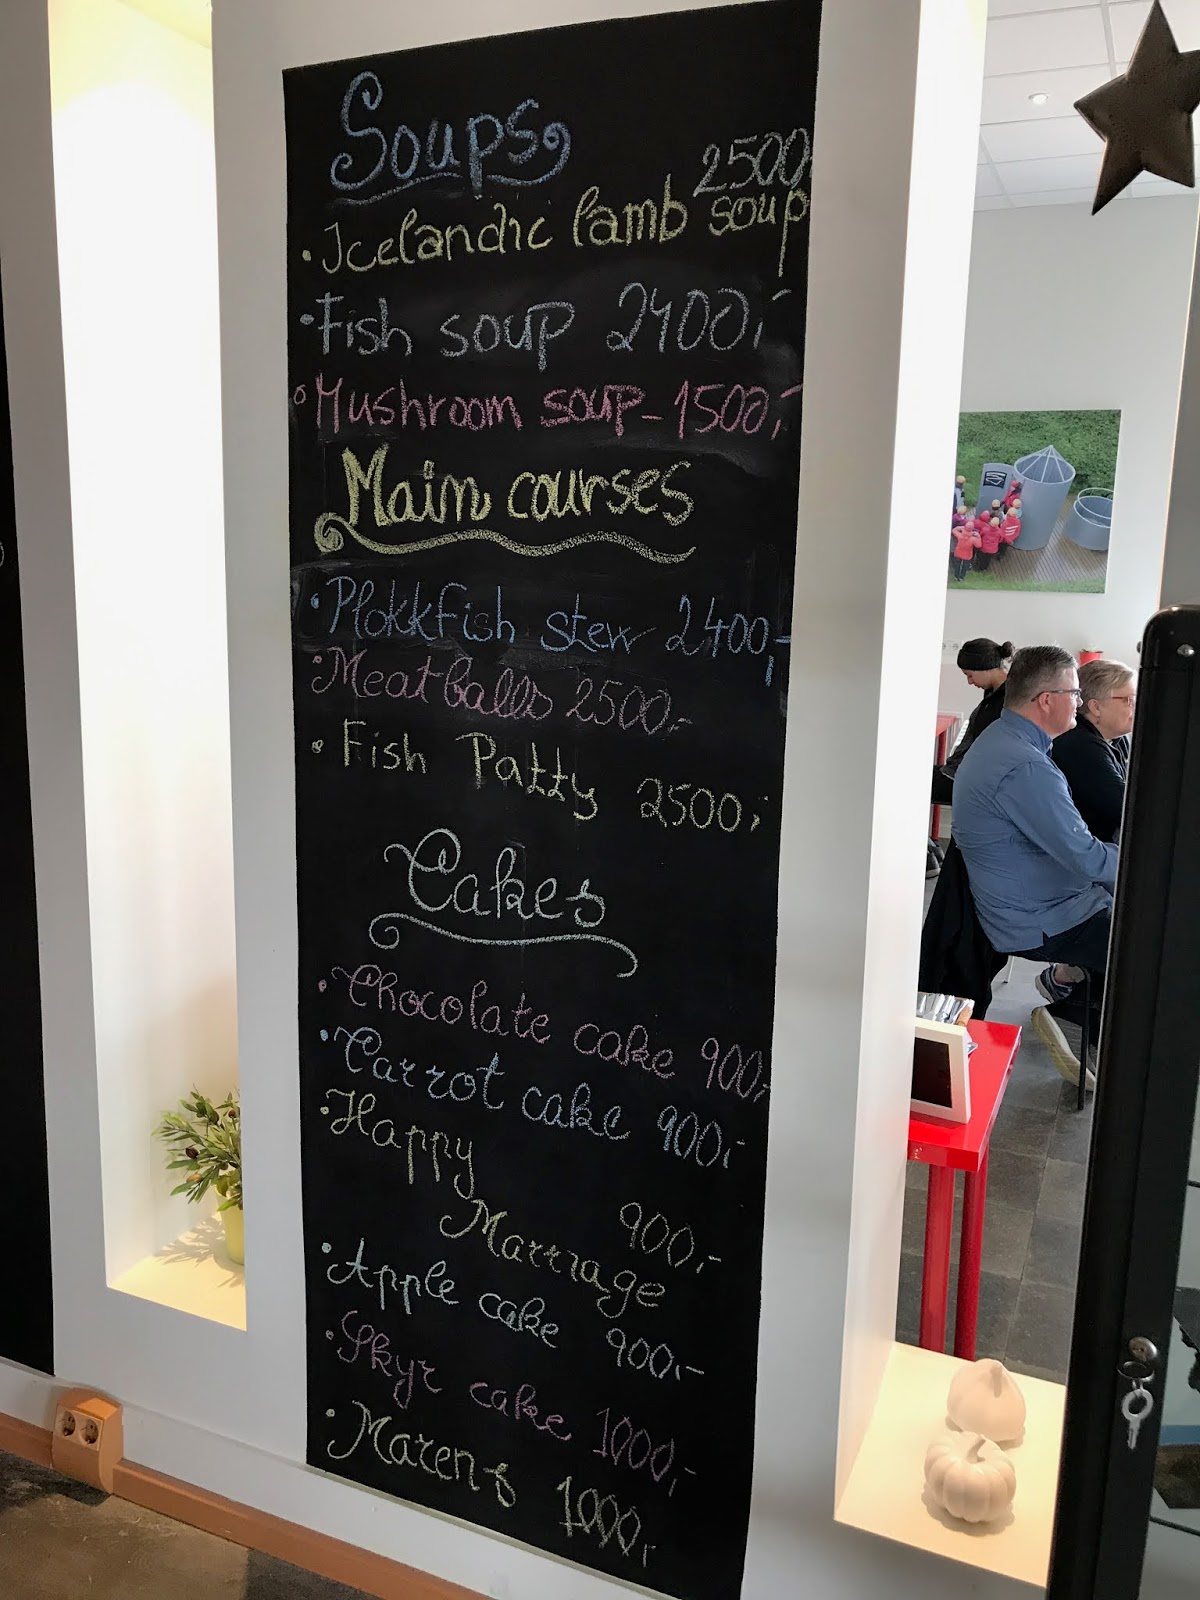 Soups
2500,-
• Icelandic lamb soup
• Fish soup 2400,-
• Mushroom soup - 1500,-
Main courses
• Plokkfish stew 2400,-
• Meatballs 2500,-
• Fish Patty 2500,-
Cakes
• Chocolate cake 900,-
• Carrot cake 900,-
• Happy
Marriage 900,-
• Apple cake 900,-
• Skyr cake 1000,-
• Marens 1000,-